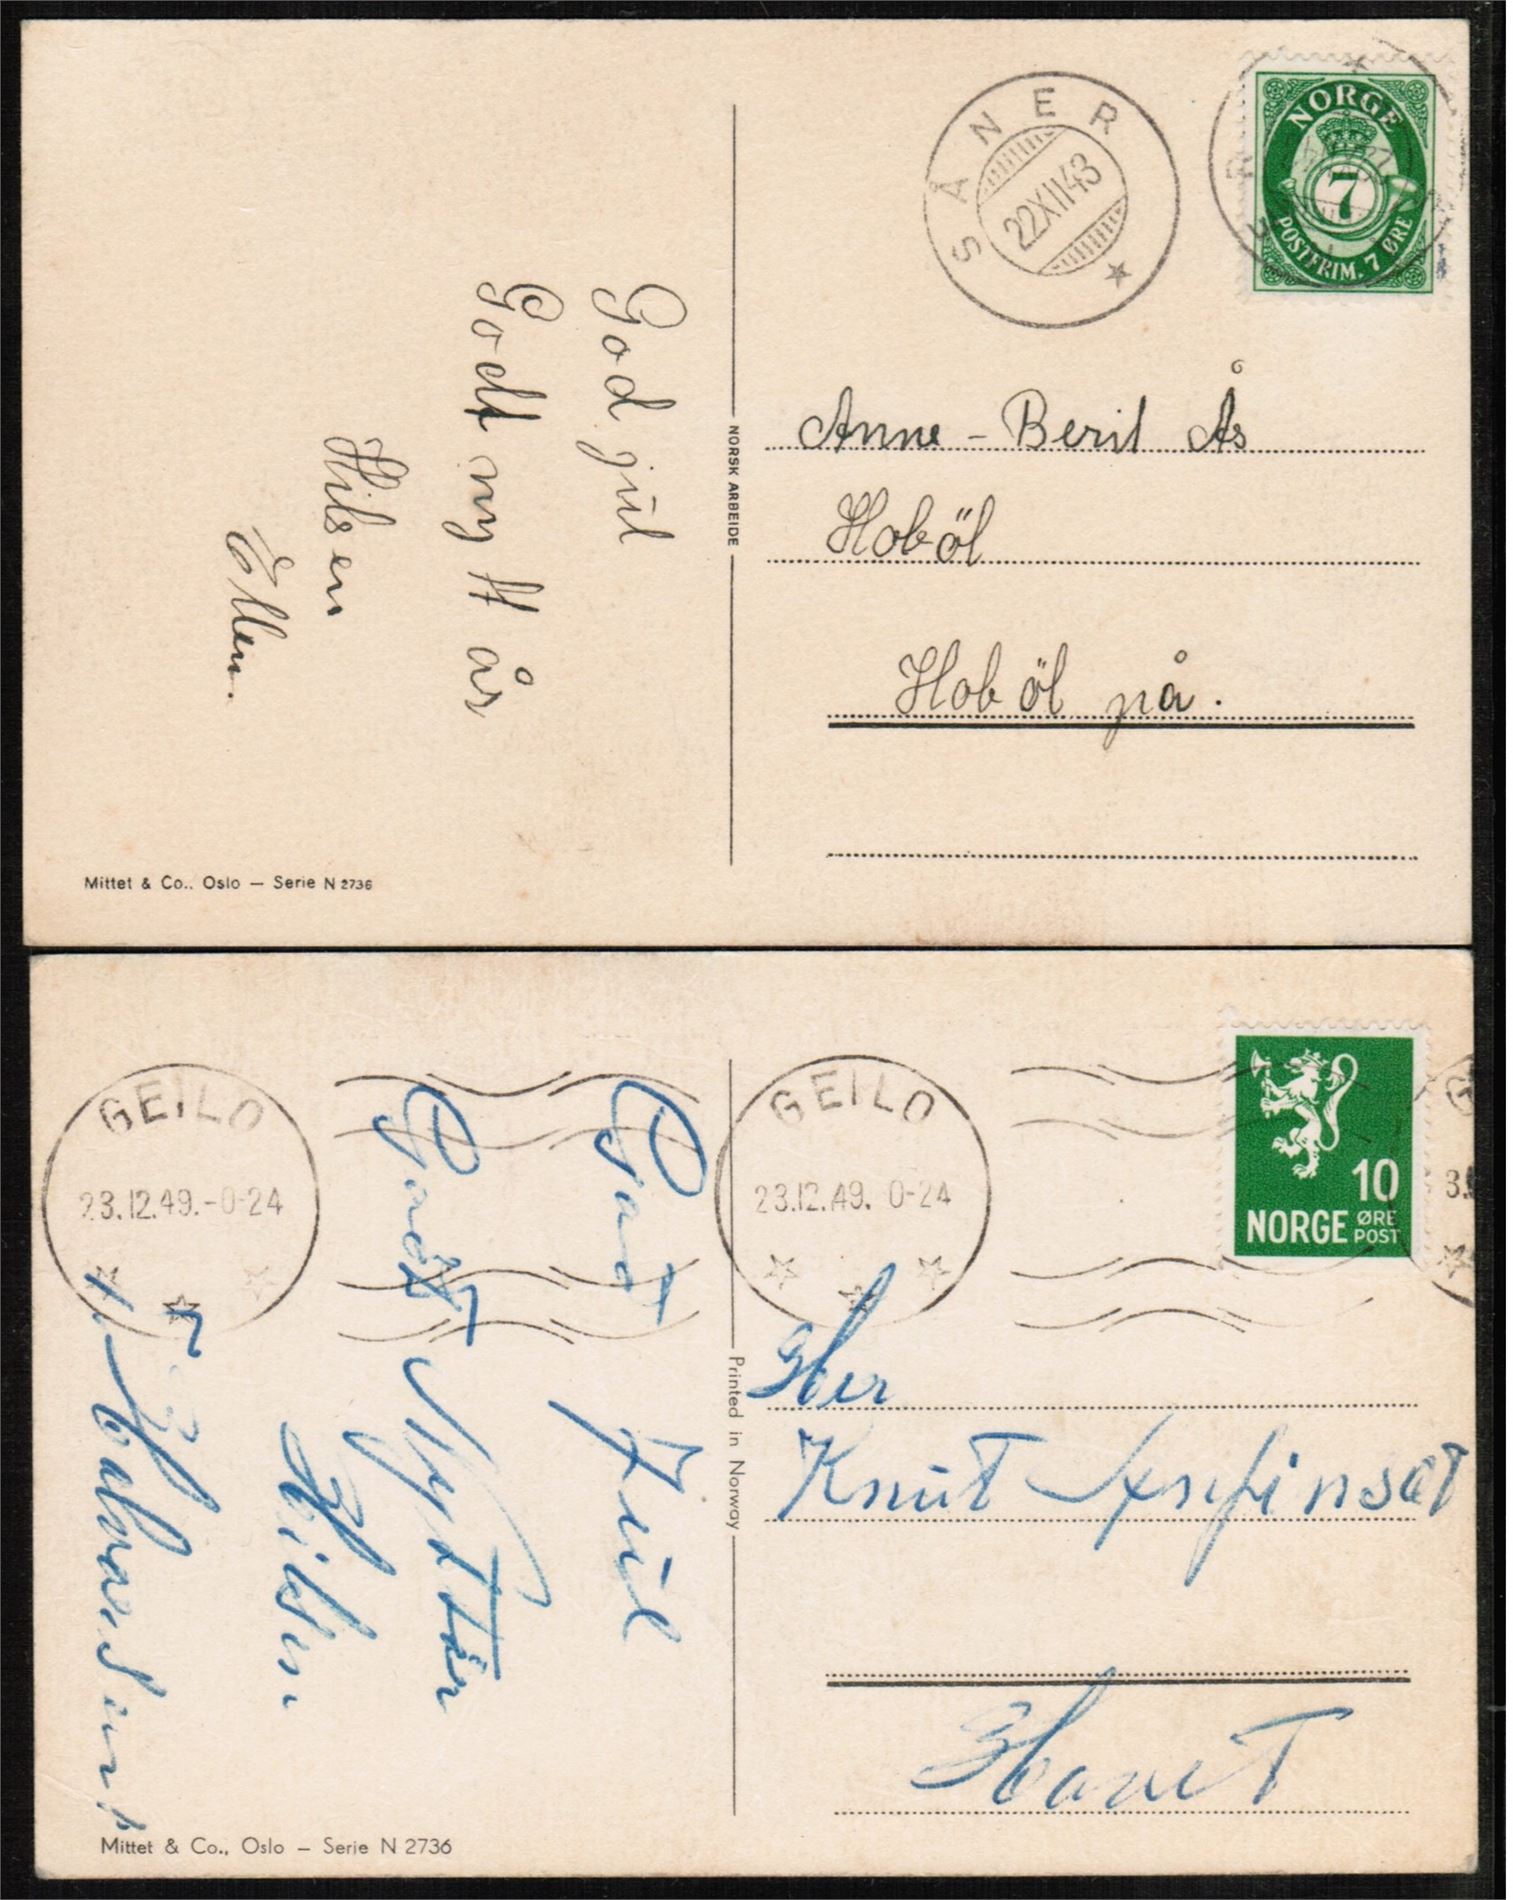 SÅNER
22XII43
NORGE
7
POSTFRIM. 7 ØRE
God jul
Godt nytt år
Hilsen
Ellen.
NORSK ARBEIDE
Anne-Berit Ås
Hoböl
Hoböl på.
Mittet & Co.. Oslo — Serie N 2736
GEILO
23.12.49.-0-24
GEILO
23.12.49. 0-24
10
NORGE ØRE
POST
God Jul
Godt Nyttår
Hilsen
Printed in Norway
Her
Knut
Mittet & Co., Oslo — Serie N 2736